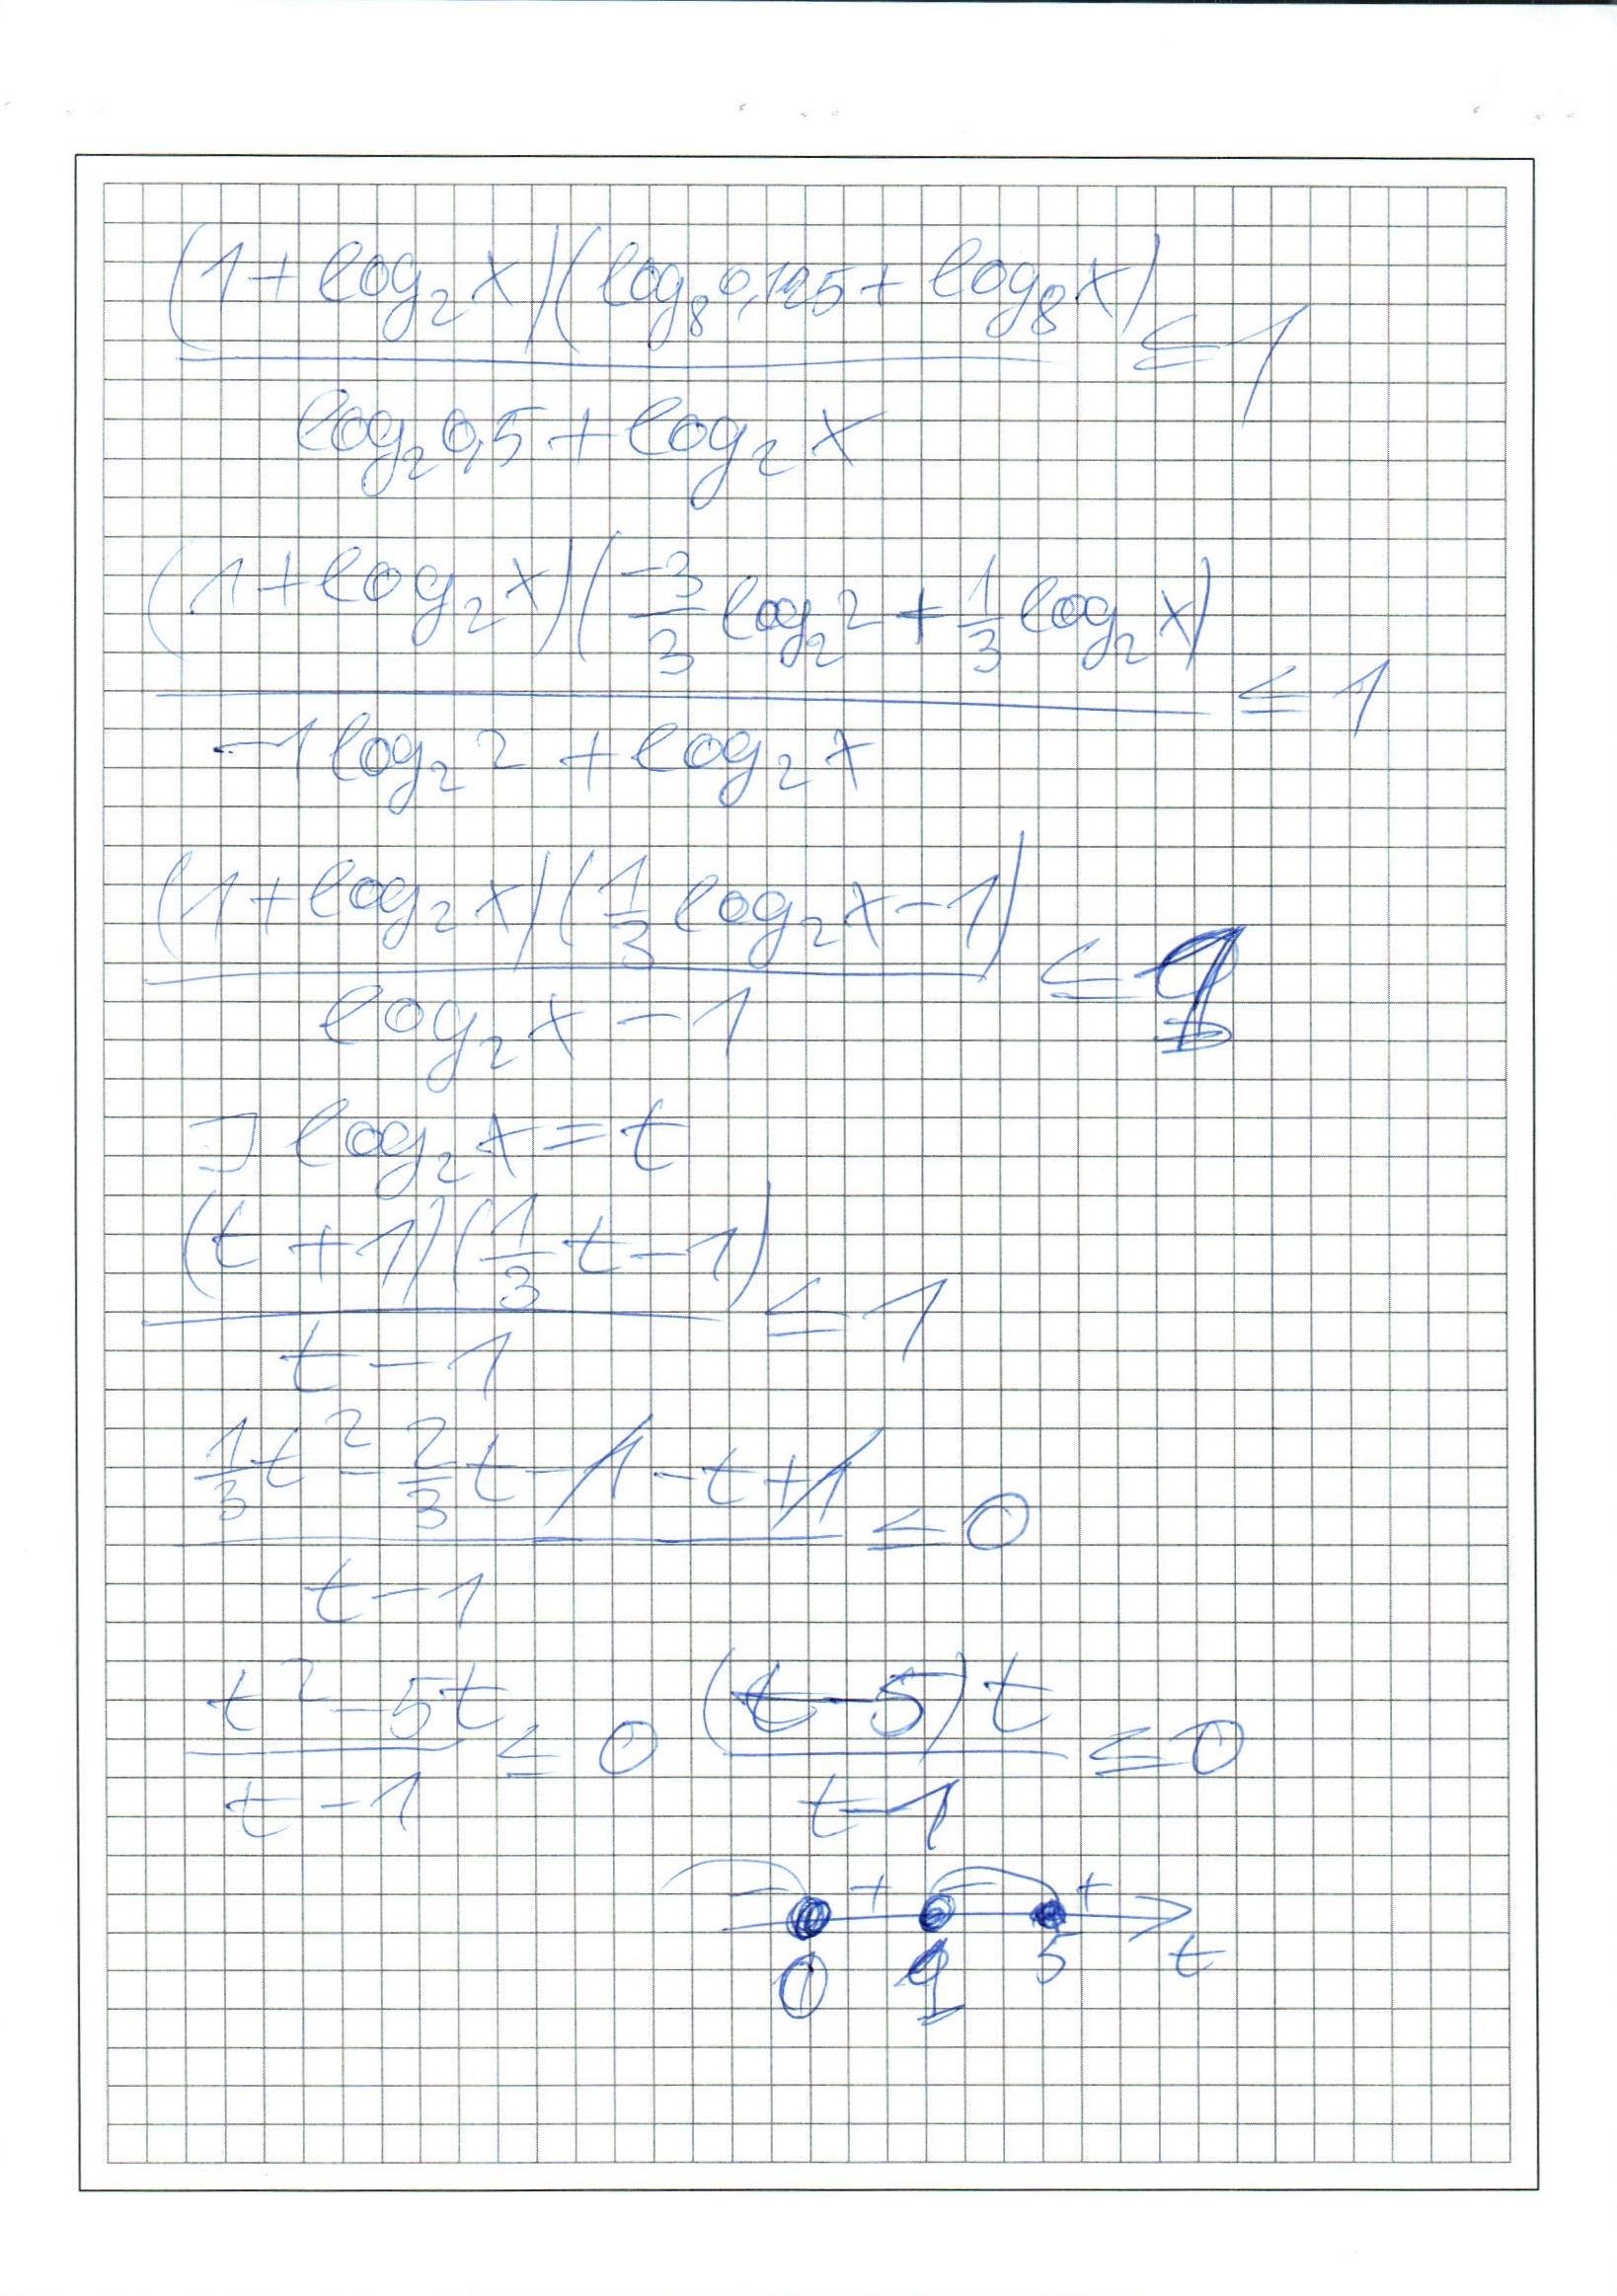 (1+log₂x)(log₈0,125+log₈x)
≤1
log₂0,5+log₂x
(1+log₂x)(-3/3 log₂2+1/3 log₂x)
≤1
-1log₂2+log₂x
(1+log₂x)(1/3 log₂x-1)
≤1
log₂x-1
⊐ log₂x=t
(t+1)(1/3 t-1)
≤1
t-1
1/3 t²-2/3 t-1-t+1
≤0
t-1
t²-5t (t-5)t
≤0 ≤0
t-1 t-1
- + - +
0 1 5 t